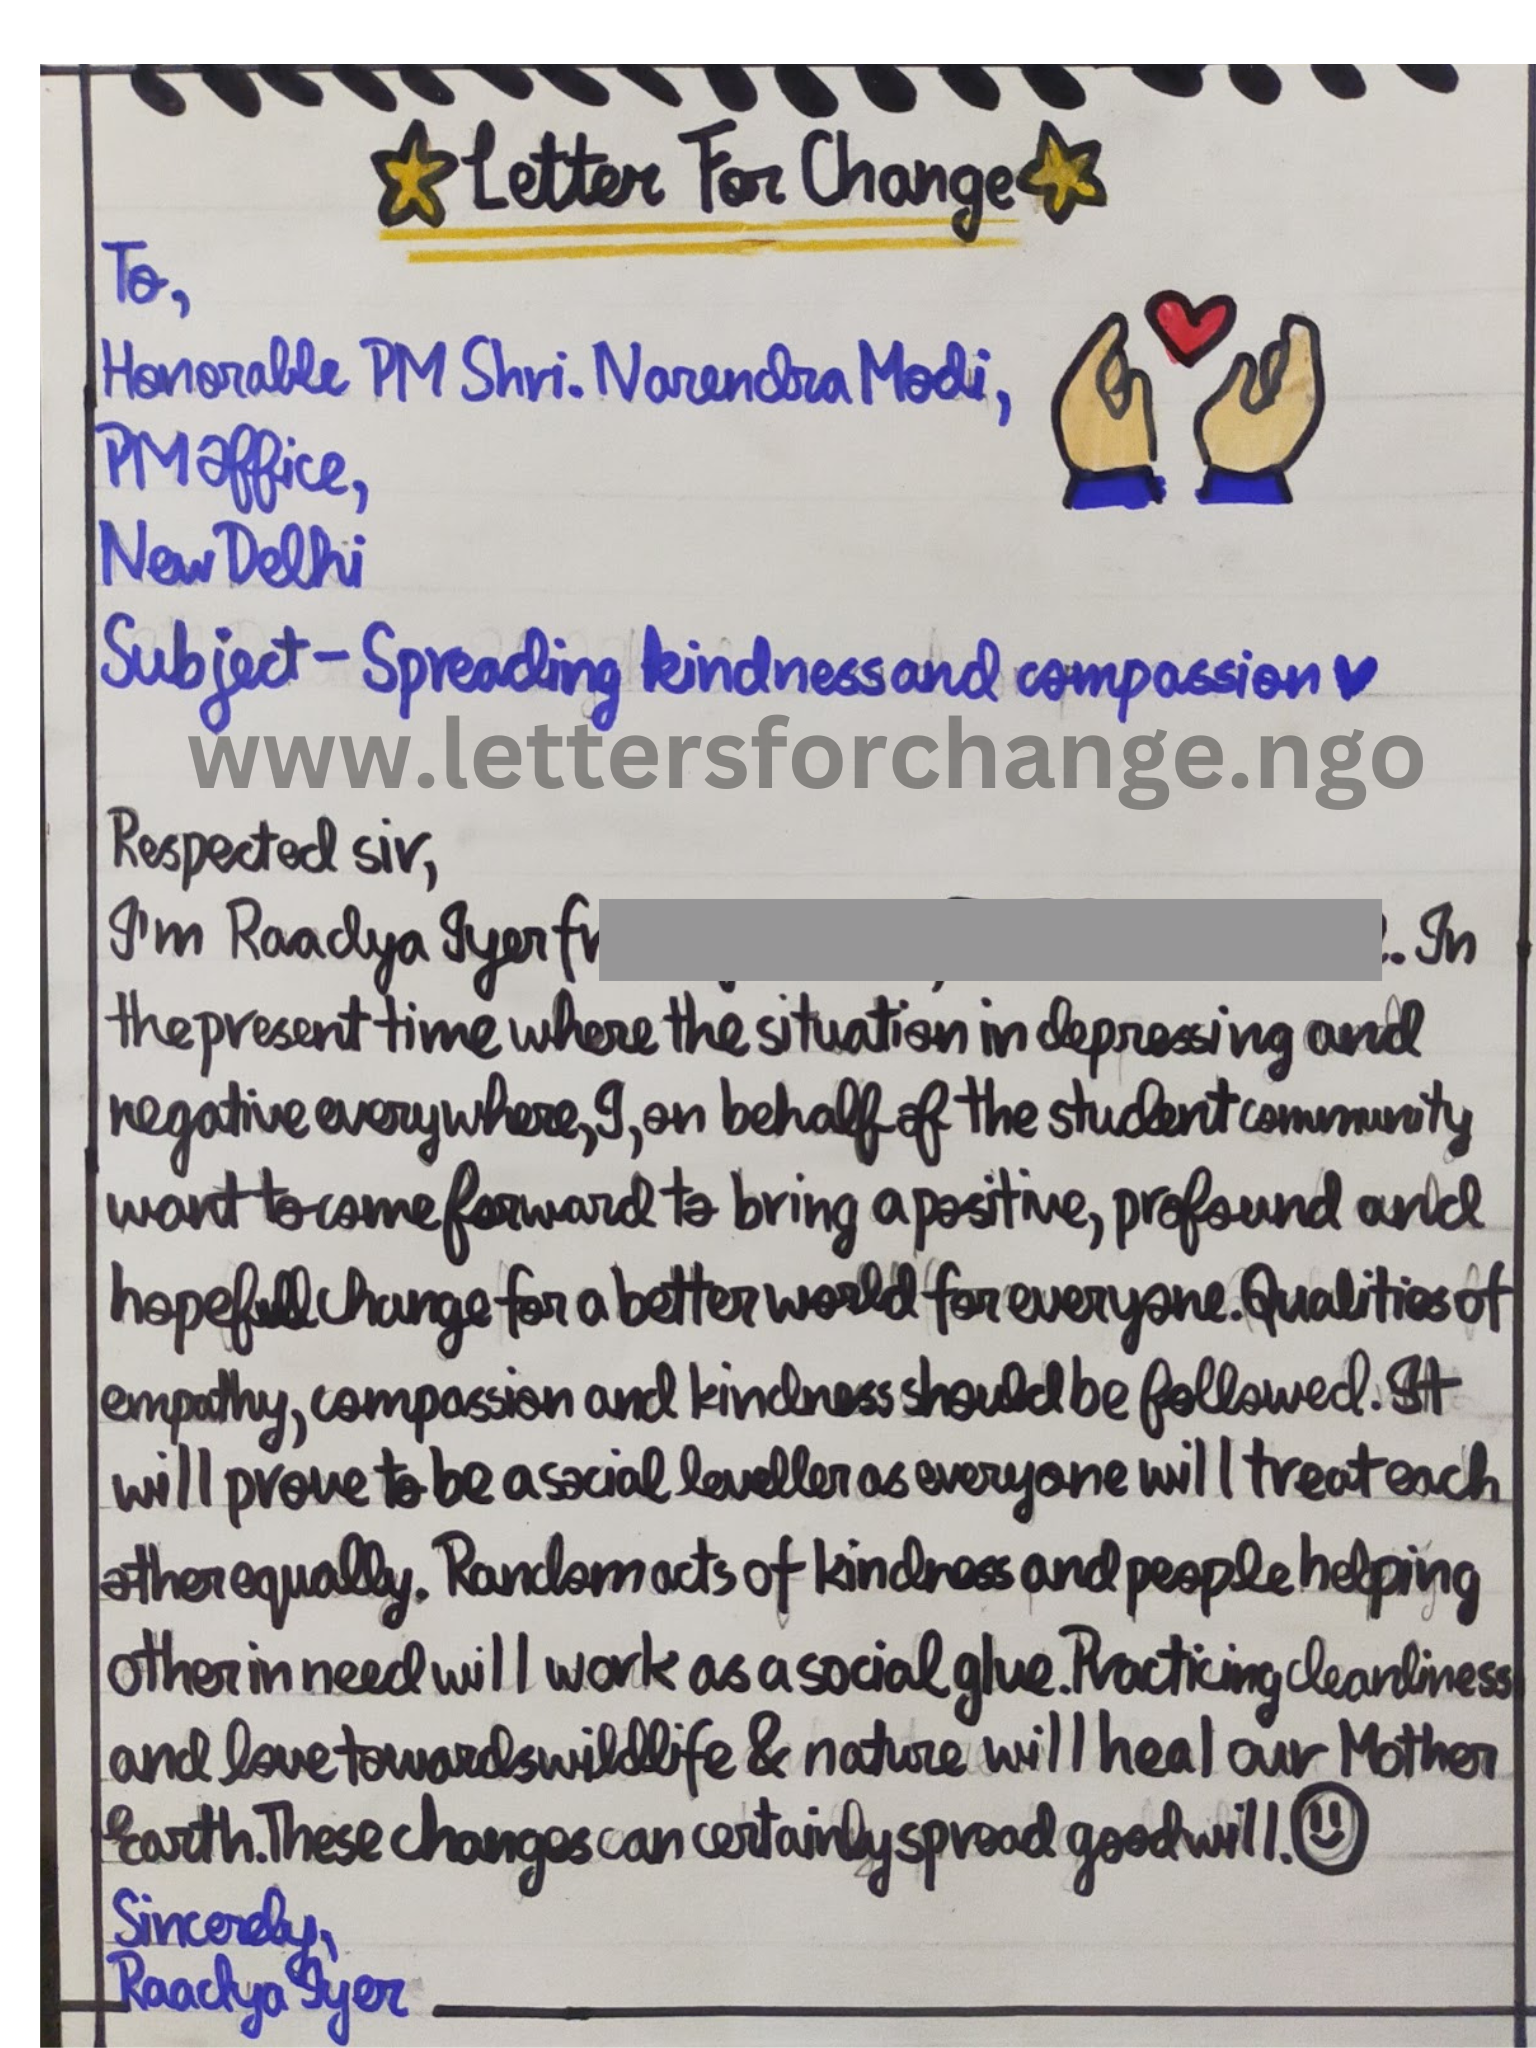 Letter For Change
To,
Honorable PM Shri. Narendra Modi,
PM office,
New Delhi
Subject - Spreading kindness and compassion
www.lettersforchange.ngo
Respected sir,
I'm Raadya Iyer . In
the present time where the situation in depressing and
negative everywhere, I, on behalf of the student community
want to come forward to bring a positive, profound and
hopefull change for a better world for everyone. Qualities of
empathy, compassion and kindness should be followed. It
will prove to be a social leveller as everyone will treat each
other equally. Random acts of kindness and people helping
other in need will work as a social glue. Practicing cleanliness
and love towards wildlife & nature will heal our Mother
Earth. These changes can certainly spread good will.
Sincerely,
Raadya Iyer